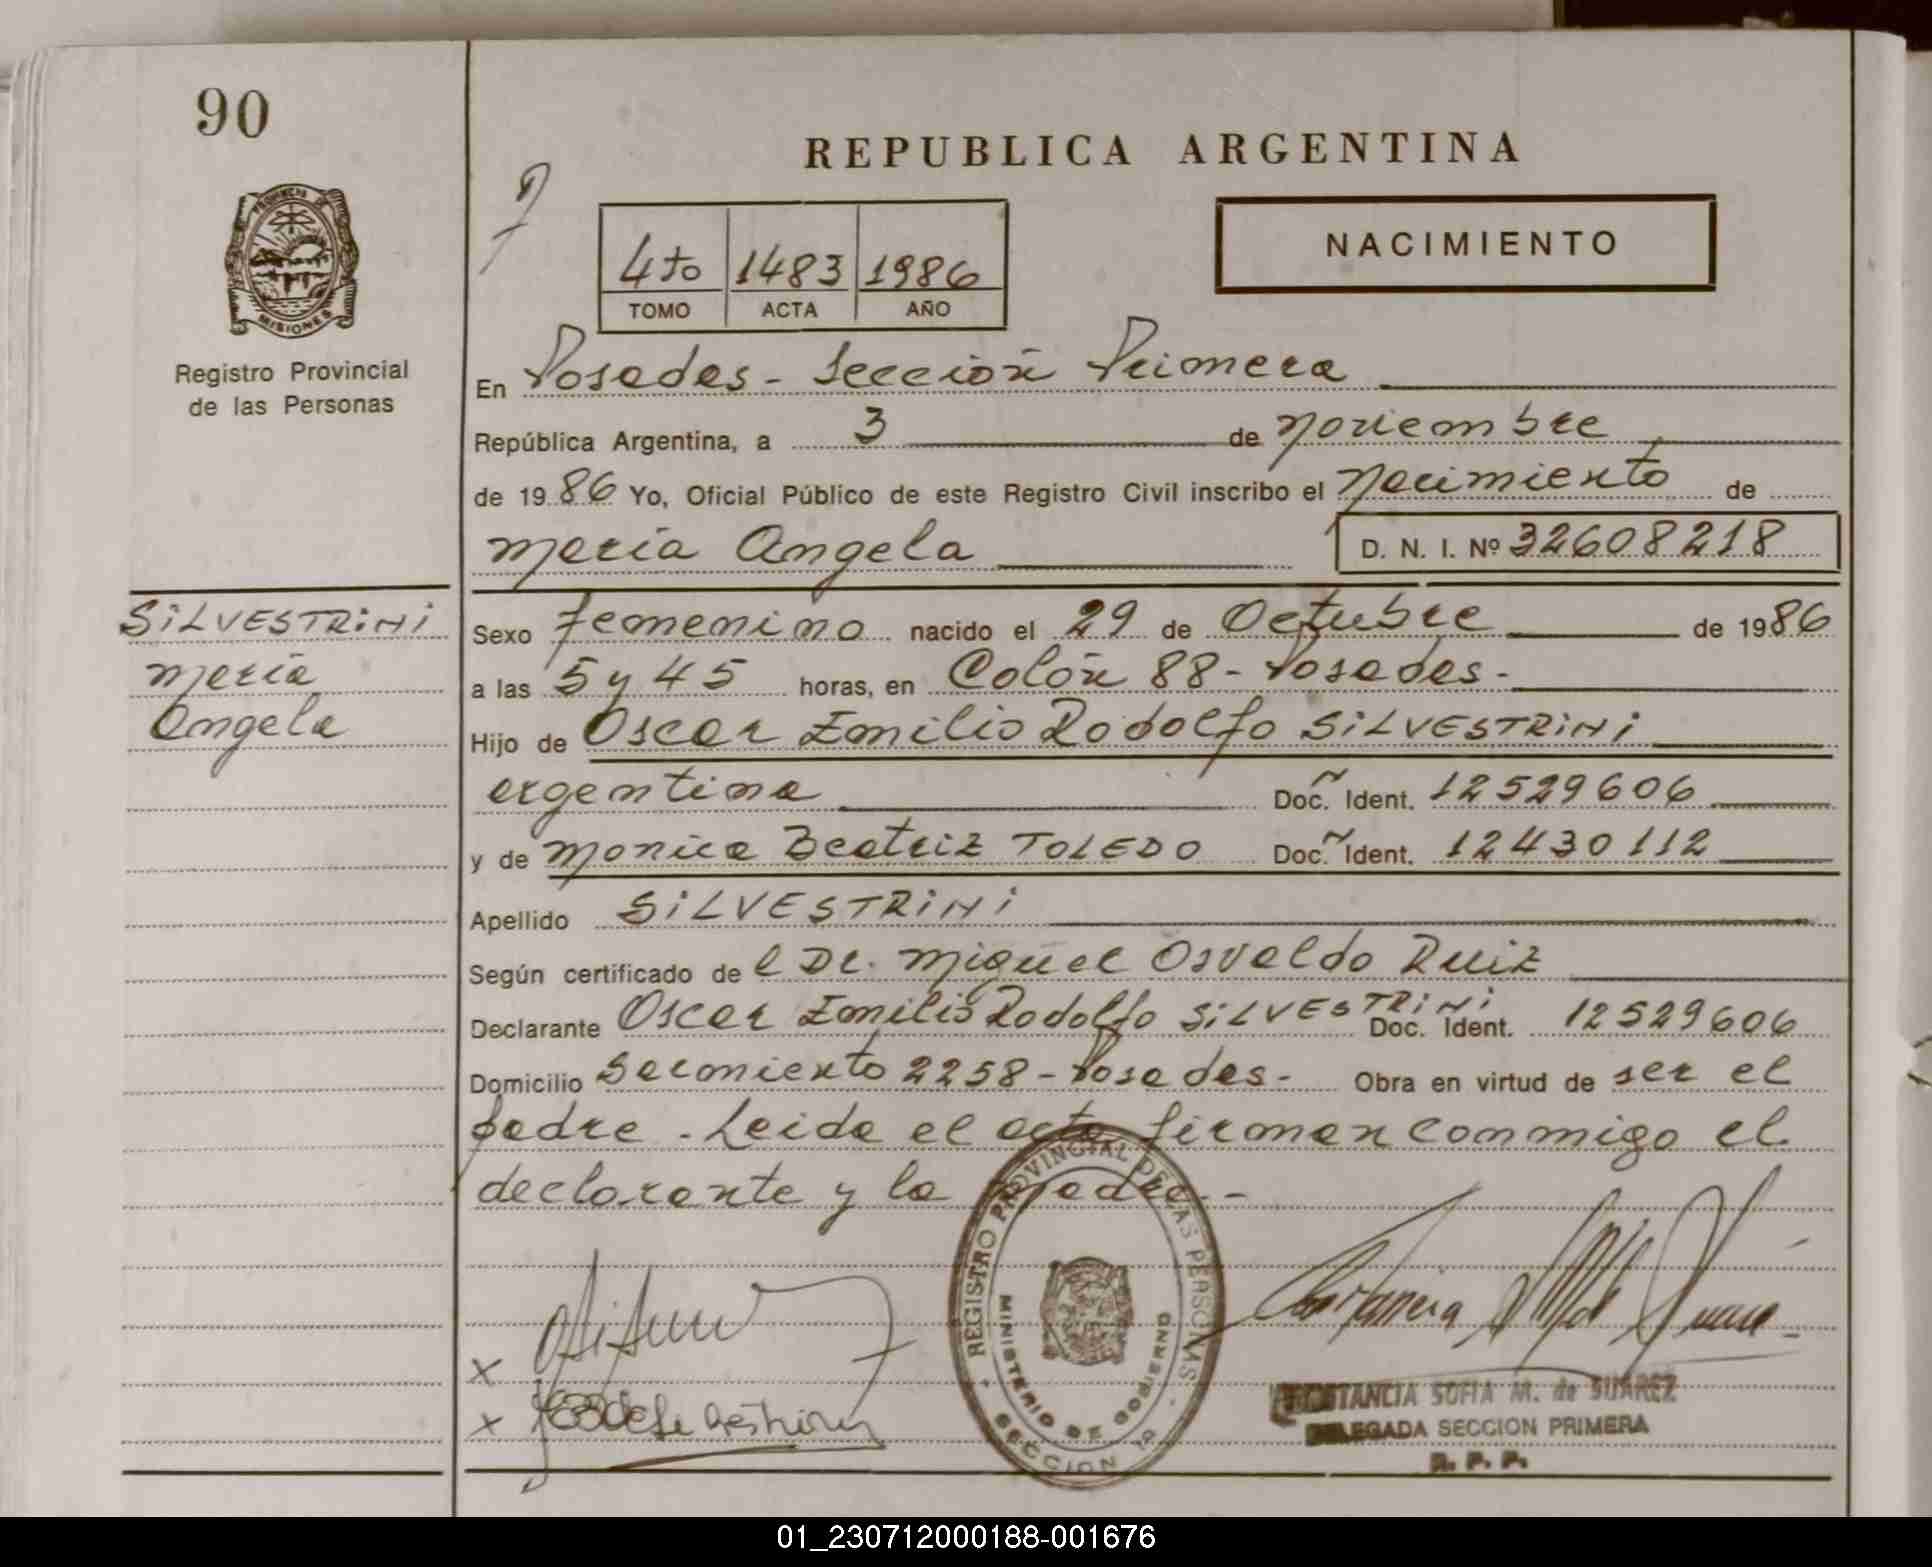 90
REPUBLICA ARGENTINA
4to 1483 1986
TOMO ACTA AÑO
NACIMIENTO
PROVINCIA DE
MISIONES
Registro Provincial
de las Personas
En Posadas - Sección Primera
República Argentina, a 3 de Noviembre
de 1986 Yo, Oficial Público de este Registro Civil inscribo el Nacimiento de
María Angela D. N. I. Nº 32608218
SILVESTRINI
María
Angela
Sexo Femenino nacido el 29 de Octubre de 1986
a las 5 y 45 horas, en Colón 88 - Posadas -
Hijo de Oscar Emilio Rodolfo SILVESTRINI
argentina Doc. Ident. 12529606
y de Monica Beatriz TOLEDO Doc. Ident. 12430112
Apellido SILVESTRINI
Según certificado del Dr. Miguel Osvaldo Ruiz
Declarante Oscar Emilio Rodolfo SILVESTRINI Doc. Ident. 12529606
Domicilio Sarmiento 2258 - Posadas - Obra en virtud de ser el
padre - Leida el acta firman conmigo el
declarante y la madre. -
REGISTRO PROVINCIAL DE LAS PERSONAS
MINISTERIO DE GOBIERNO
SECCION 1a
x
x
CONSTANCIA SOFIA M. de SUAREZ
DELEGADA SECCION PRIMERA
R. P. P.
01_230712000188-001676